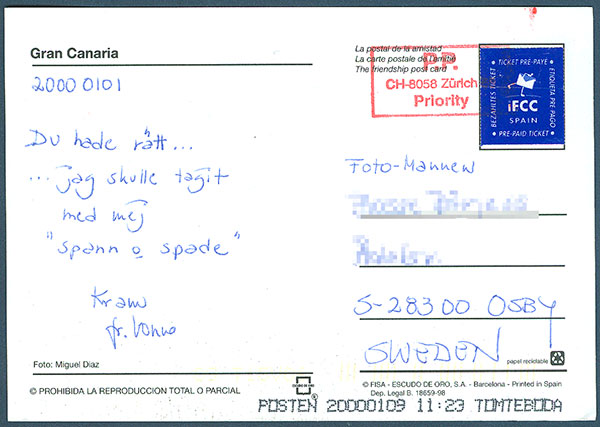 Gran Canaria
2000 0101
Du hade rätt...
...jag skulle tagit
med mej
"spann o spade"
Kram
fr.
Foto: Miguel Diaz
© PROHIBIDA LA REPRODUCCION TOTAL O PARCIAL
ESCUDO DE ORO
La postal de la amistad
La carte postale de l'amitié
The friendship post card
P.P.
CH-8058 Zürich
Priority
TICKET PRE-PAYE
BEZAHLTES TICKET
ETIQUETA PRE PAGO
iFCC
SPAIN
PRE-PAID TICKET
Foto-Mannen
S-283 00 OSBY
SWEDEN
papel reciclable
© FISA - ESCUDO DE ORO, S.A. - Barcelona - Printed in Spain
Dep. Legal B. 18659-98
POSTEN 20000109 11:23 TOMTEBODA